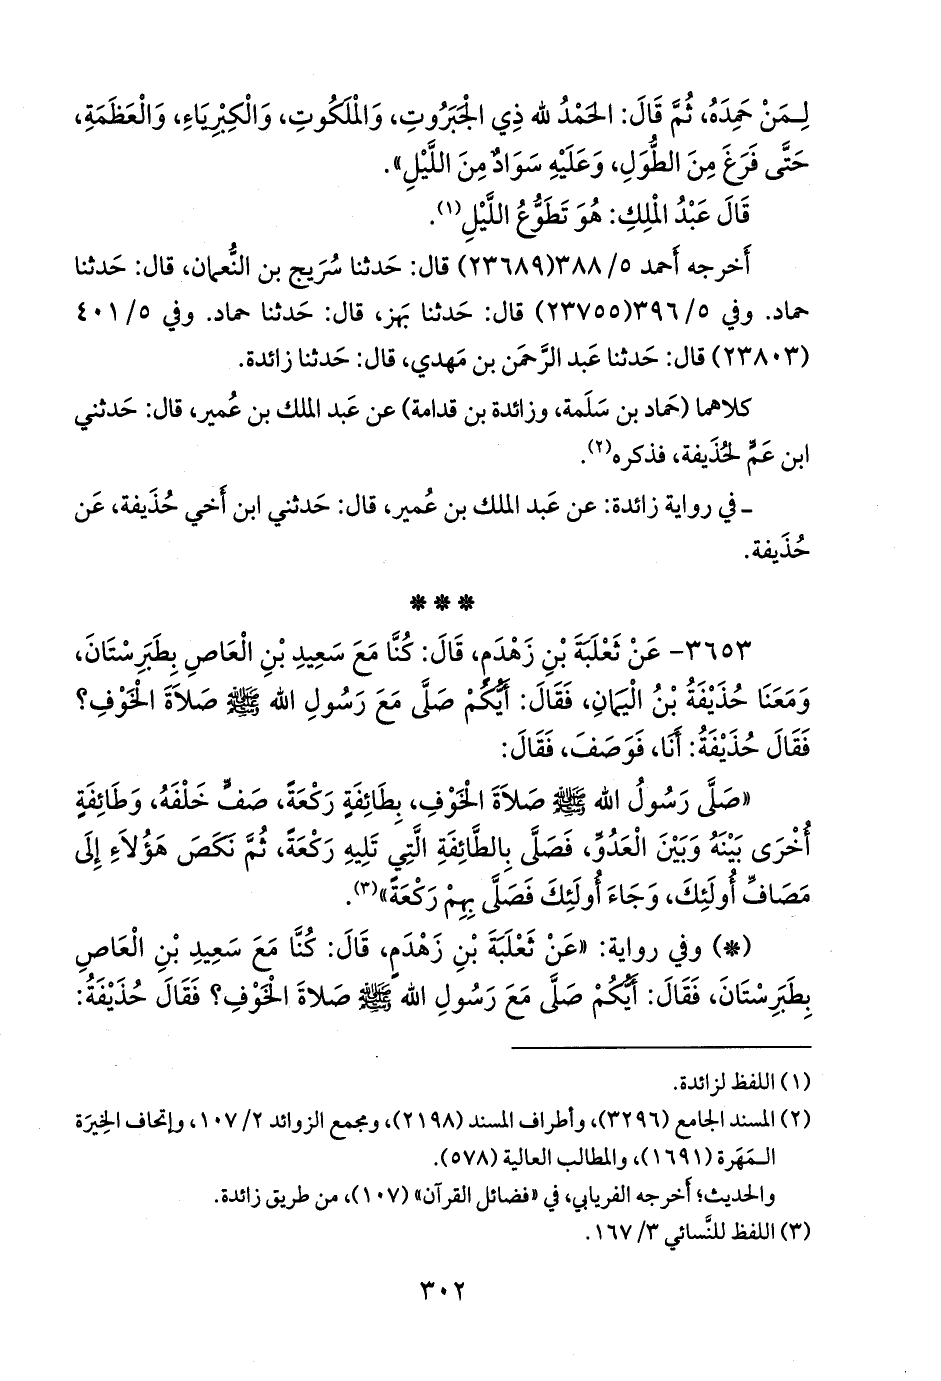 لِـمَنْ حَمِدَهُ، ثُمَّ قَالَ: الحَمْدُ لله ذِي الْجَبَرُوتِ، وَالْمَلَكُوتِ، وَالْكِبْرِيَاءِ، وَالْعَظَمَةِ،
حَتَّى فَرَغَ مِنَ الطُّوَلِ، وَعَلَيْهِ سَوَادٌ مِنَ اللَّيْلِ».
قَالَ عَبْدُ الْمَلِكِ: هُوَ تَطَوُّعُ اللَّيْلِ(١).
أَخرجه أَحمد ٥/ ٣٨٨(٢٣٦٨٩) قال: حَدثنا سُرَيج بن النُّعمان، قال: حَدثنا
حماد. وفي ٥/ ٣٩٦(٢٣٧٥٥) قال: حَدثنا بَهز، قال: حَدثنا حماد. وفي ٥/ ٤٠١
(٢٣٨٠٣) قال: حَدثنا عَبد الرَّحمَن بن مَهدي، قال: حَدثنا زائدة.
كلاهما (حَماد بن سَلَمة، وزائدة بن قدامة) عن عَبد الملك بن عُمير، قال: حَدثني
ابن عَمٍّ لحُذَيفة، فذكره(٢).
ـ في رواية زائدة: عن عَبد الملك بن عُمير، قال: حَدثني ابن أَخي حُذَيفة، عَن
حُذَيفة.
***
٣٦٥٣- عَنْ ثَعْلَبَةَ بْنِ زَهْدَمٍ، قَالَ: كُنَّا مَعَ سَعِيدِ بْنِ الْعَاصِ بِطَبَرِسْتَانَ،
وَمَعَنَا حُذَيْفَةُ بْنُ الْيَمَانِ، فَقَالَ: أَيُّكُمْ صَلَّى مَعَ رَسُولِ الله ﷺ صَلَاَةَ الْخَوْفِ؟
فَقَالَ حُذَيْفَةُ: أَنَا، فَوَصَفَ، فَقَالَ:
«صَلَّى رَسُولُ الله ﷺ صَلاَةَ الْخَوْفِ، بِطَائِفَةٍ رَكْعَةً، صَفٌّ خَلْفَهُ، وَطَائِفَةٍ
أُخْرَى بَيْنَهُ وَبَيْنَ الْعَدُوِّ، فَصَلَّى بِالطَّائِفَةِ الَّتِي تَلِيهِ رَكْعَةً، ثُمَّ نَكَصَ هَؤُلاَءِ إِلَى
مَصَافِّ أُولَئِكَ، وَجَاءَ أُولَئِكَ فَصَلَّى بِهِمْ رَكْعَةً»(٣).
(*) وفي رواية: «عَنْ ثَعْلَبَةَ بْنِ زَهْدَمٍ، قَالَ: كُنَّا مَعَ سَعِيدِ بْنِ الْعَاصِ
بِطَبَرِسْتَانَ، فَقَالَ: أَيُّكُمْ صَلَّى مَعَ رَسُولِ الله ﷺ صَلاةَ الْخَوْفِ؟ فَقَالَ حُذَيْفَةُ:
(١) اللفظ لزائدة.
(٢) المسند الجامع (٣٢٩٦)، وأطراف المسند (٢١٩٨)، ومجمع الزوائد ٢/ ١٠٧، وإتحاف الخِيرَة
الـمَهَرة (١٦٩١)، والمطالب العالية (٥٧٨).
والحديث؛ أَخرجه الفريابي، في «فضائل القرآن» (١٠٧)، من طريق زائدة.
(٣) اللفظ للنَّسائي ٣/ ١٦٧.
٣٠٢